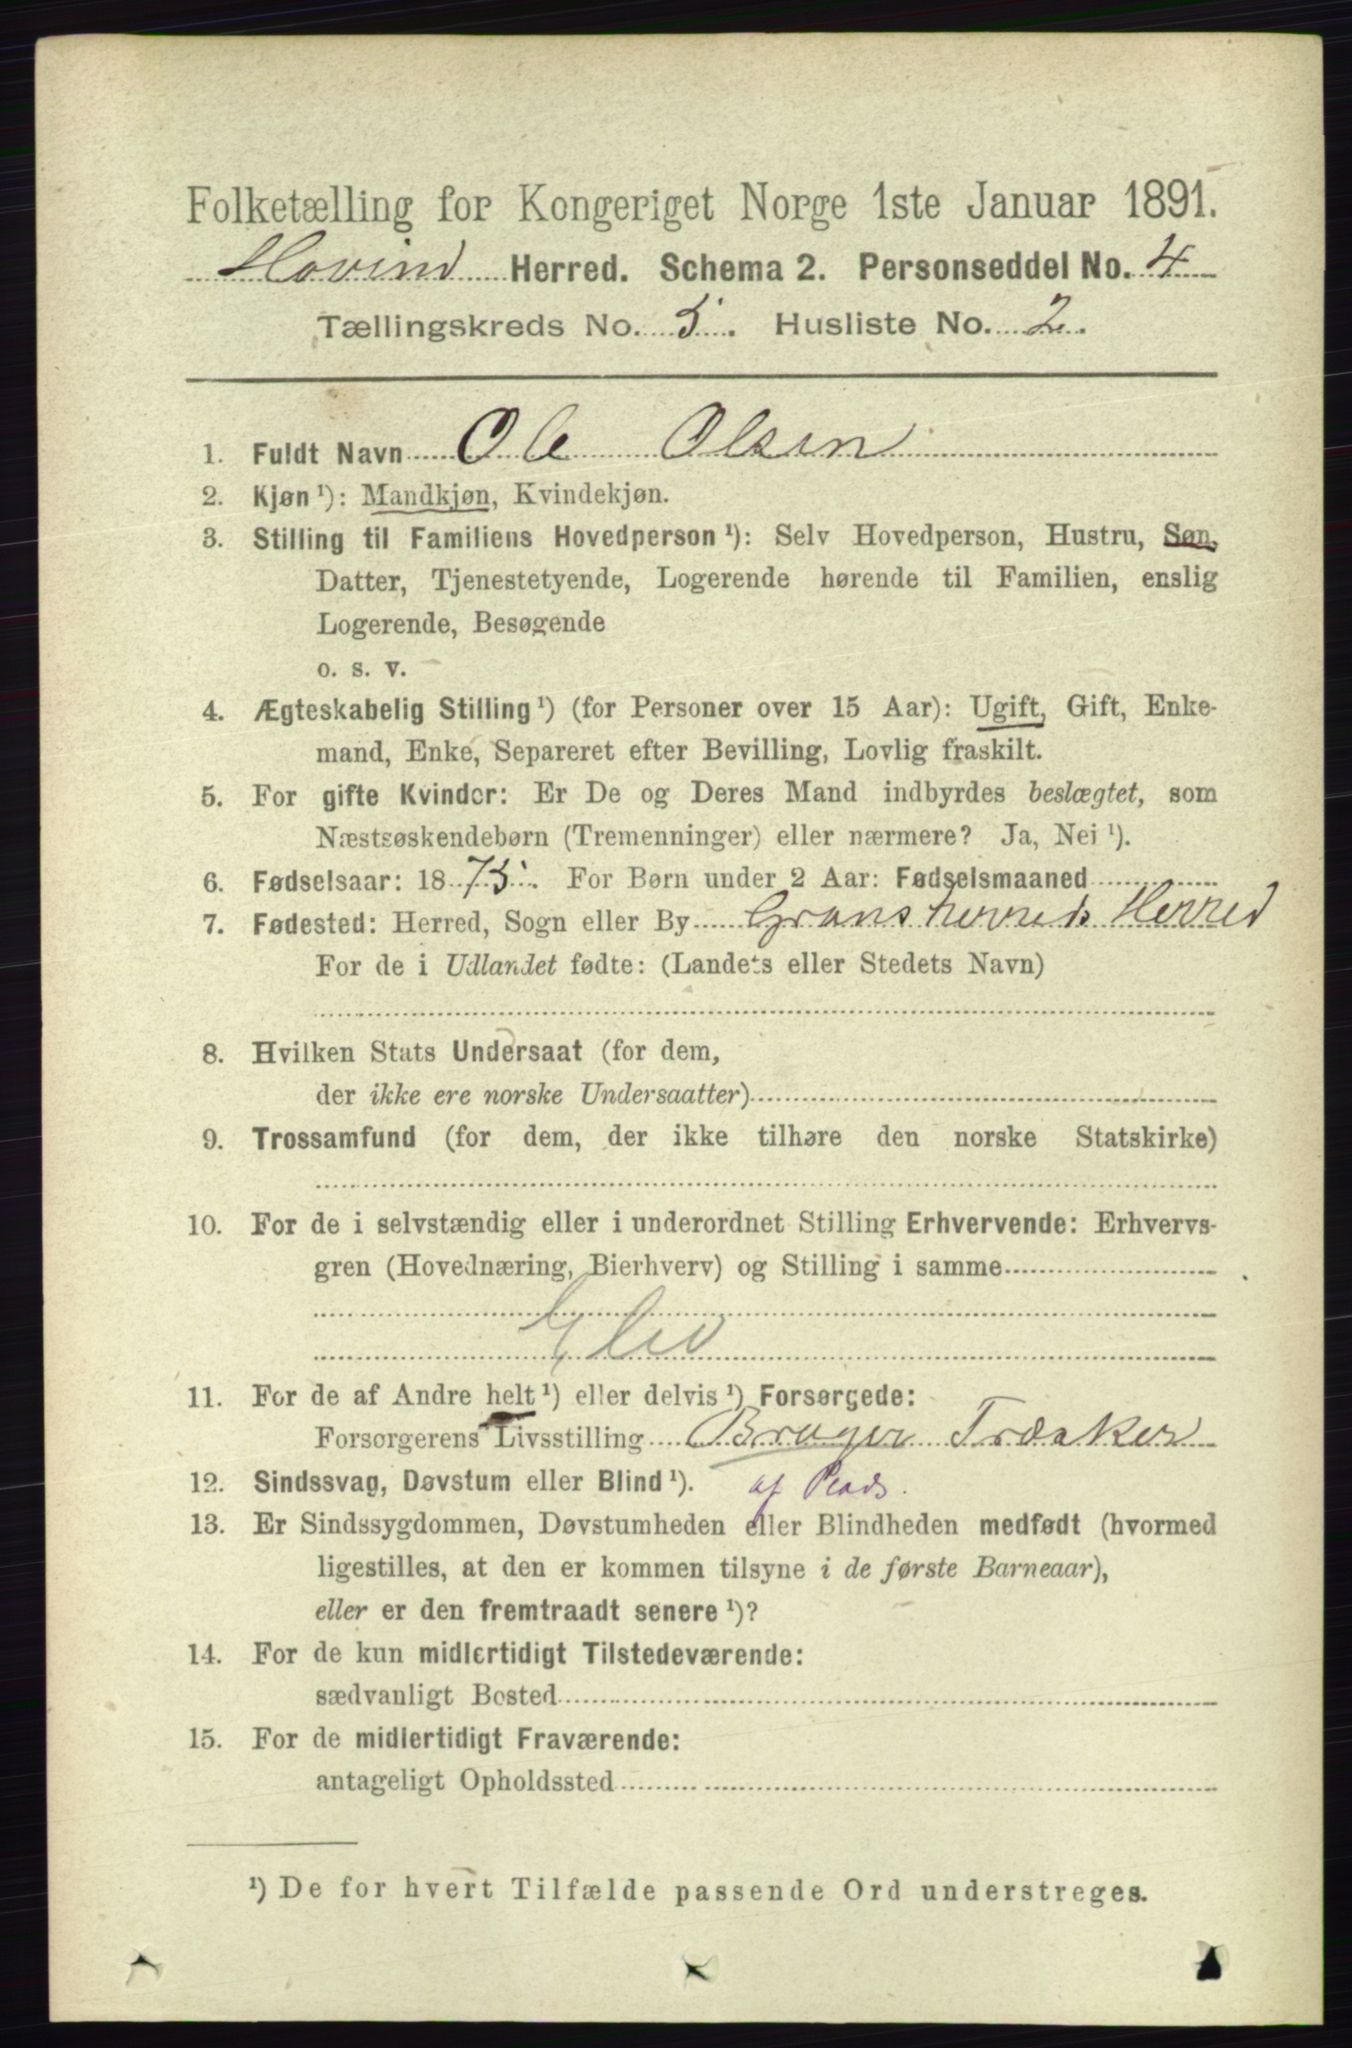 Folketælling for Kongeriget Norge 1ste Januar 1891.
Hovind Herred. Schema 2. Personseddel No. 4
Tællingskreds No. 5. Husliste No. 2.
1. Fuldt Navn Ole Olsen
2. Kjøn ¹): Mandkjøn, Kvindekjøn.
3. Stilling til Familiens Hovedperson ¹): Selv Hovedperson, Hustru, Søn,
Datter, Tjenestetyende, Logerende hørende til Familien, enslig
Logerende, Besøgende
o. s. v.
4. Ægteskabelig Stilling ¹) (for Personer over 15 Aar): Ugift, Gift, Enke-
mand, Enke, Separeret efter Bevilling, Lovlig fraskilt.
5. For gifte Kvinder: Er De og Deres Mand indbyrdes beslægtet, som
Næstsøskendebørn (Tremenninger) eller nærmere? Ja, Nei ¹).
6. Fødselsaar: 1875. For Børn under 2 Aar: Fødselsmaaned
7. Fødested: Herred, Sogn eller By Gransherreds Herred
For de i Udlandet fødte: (Landets eller Stedets Navn)
8. Hvilken Stats Undersaat (for dem,
der ikke ere norske Undersaatter)
9. Trossamfund (for dem, der ikke tilhøre den norske Statskirke)
10. For de i selvstændig eller i underordnet Stilling Erhvervende: Erhvervs-
gren (Hovednæring, Bierhverv) og Stilling i samme
11. For de af Andre helt ¹) eller delvis ¹) Forsørgede:
Forsørgerens Livsstilling Bruger
12. Sindssvag, Døvstum eller Blind ¹). af Plads.
13. Er Sindssygdommen, Døvstumheden eller Blindheden medfødt (hvormed
ligestilles, at den er kommen tilsyne i de første Barneaar),
eller er den fremtraadt senere ¹)?
14. For de kun midlertidigt Tilstedeværende:
sædvanligt Bosted
15. For de midlertidigt Fraværende:
antageligt Opholdssted
¹) De for hvert Tilfælde passende Ord understreges.